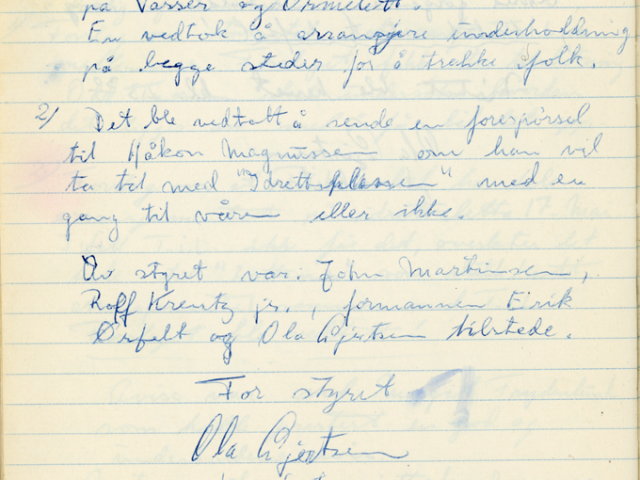 på Vasser og Ormelett.
En vedtok å arrangjere underholdning
på begge steder for å trekke folk.
2/ Det ble vedtatt å sende en forespörsel
til Håkon Magnussen om han vil
ta til med "Idrettsplassen" med en
gang til våren eller ikke.
Av styret var: John Martinsen,
Rolf Krentz jr., formannen Eirik
Ørfelt og Ola Gjertsen tilstede.
For styret
Ola Gjertsen